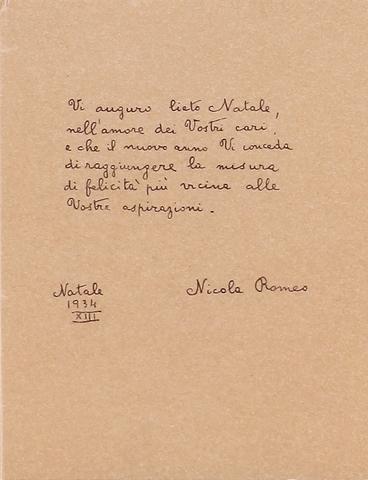 Vi auguro lieto Natale,
nell'amore dei Vostri cari,
e che il nuovo anno Vi conceda
di raggiungere la misura
di felicità più vicina alle
Vostre aspirazioni.
Natale
1934
XIII
Nicola Romeo